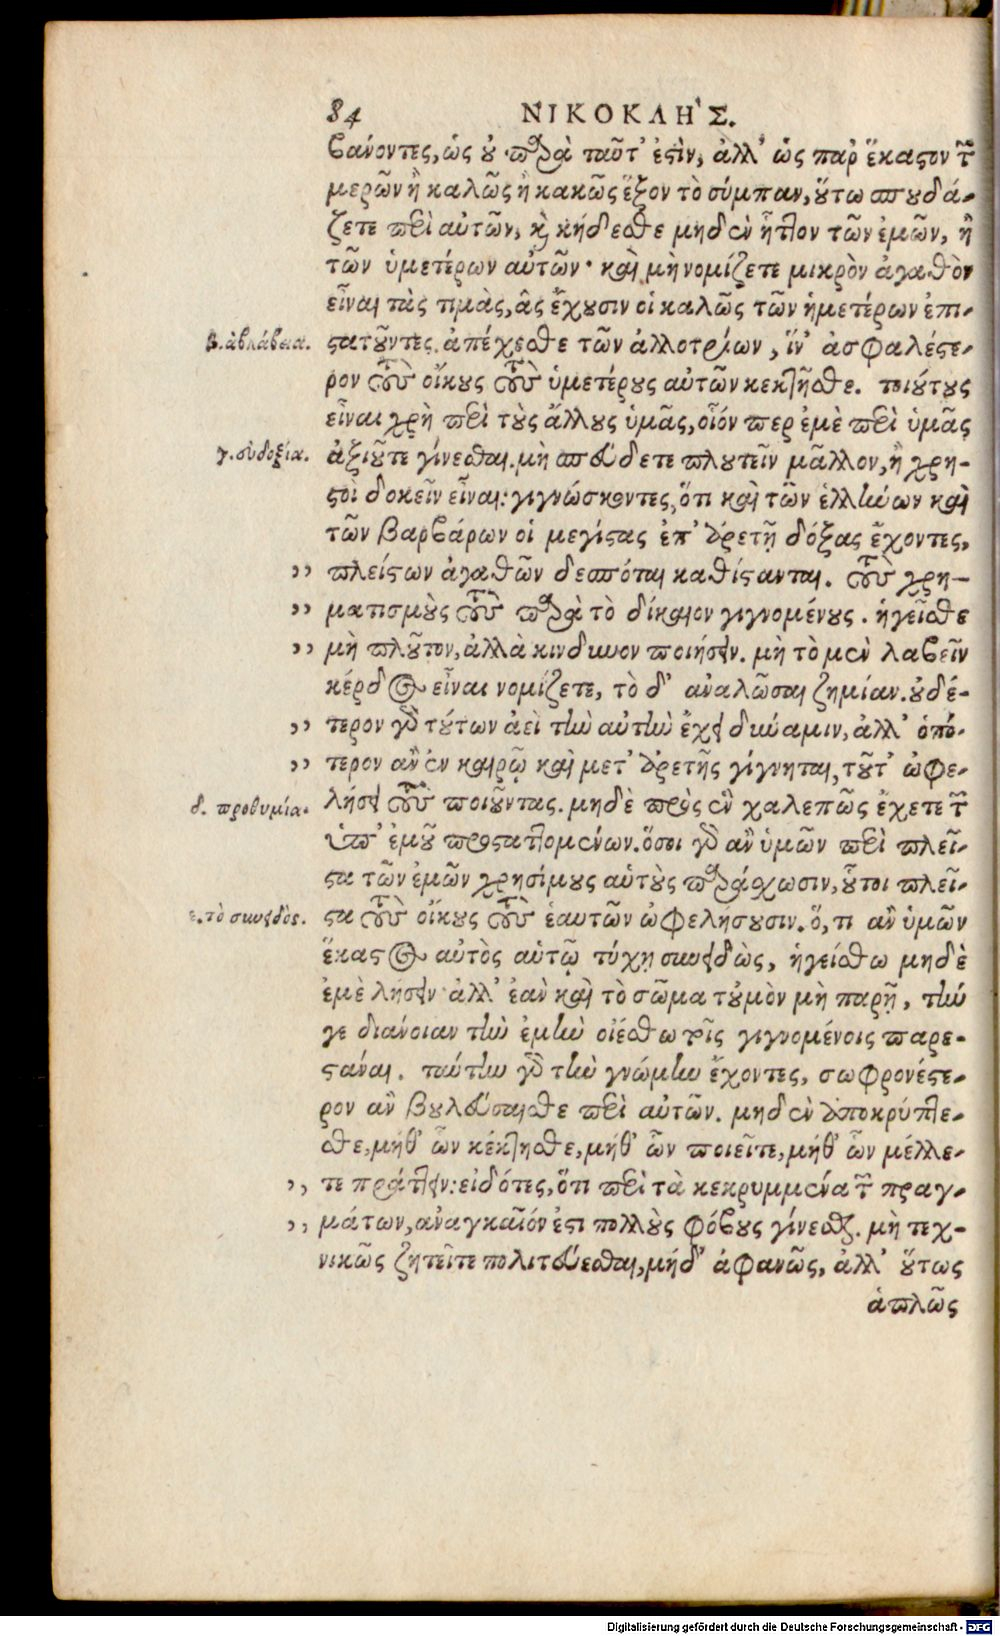 84 ΝΙΚΟΚΛΗ'Σ.
βάνοντες, ὡς οὐ παρὰ ταῦτ' ἐστὶν, ἀλλ' ὡς παρ' ἕκαστον τῶν
μερῶν ἢ καλῶς ἢ κακῶς ἕξον τὸ σύμπαν, οὕτω σπουδά-
ζετε περὶ αὐτῶν, καὶ κήδεσθε μηδὲν ἧττον τῶν ἐμῶν, ἢ
τῶν ὑμετέρων αὐτῶν· καὶ μὴ νομίζετε μικρὸν ἀγαθὸν
εἶναι τὰς τιμὰς, ἃς ἔχουσιν οἱ καλῶς τῶν ἡμετέρων ἐπι-
β. ἀβλάβεια. στατοῦντες. ἀπέχεσθε τῶν ἀλλοτρίων, ἵν' ἀσφαλέστε-
ρον τοὺς οἴκους τοὺς ὑμετέρους αὐτῶν κεκτῆσθε. τοιούτους
εἶναι χρὴ περὶ τοὺς ἄλλους ὑμᾶς, οἷόν περ ἐμὲ περὶ ὑμᾶς
γ. εὐδοξία. ἀξιοῦτε γίνεσθαι. μὴ σπεύδετε πλουτεῖν μᾶλλον, ἢ χρη-
στοὶ δοκεῖν εἶναι: γιγνώσκοντες, ὅτι καὶ τῶν ἑλλήνων καὶ
τῶν βαρβάρων οἱ μεγίστας ἐπ' ἀρετῇ δόξας ἔχοντες,
,, πλείστων ἀγαθῶν δεσπόται καθίστανται. τοὺς χρη-
,, ματισμοὺς τοὺς παρὰ τὸ δίκαιον γιγνομένους. ἡγεῖσθε
,, μὴ πλοῦτον, ἀλλὰ κίνδυνον ποιήσειν. μὴ τὸ μὲν λαβεῖν
κέρδος εἶναι νομίζετε, τὸ δ' ἀναλῶσαι ζημίαν. οὐδέ-
,, τερον γὰρ τούτων ἀεὶ τὴν αὐτὴν ἔχει δύναμιν, ἀλλ' ὁπό-
,, τερον ἂν ἐν καιρῷ καὶ μετ' ἀρετῆς γίγνηται, τοῦτ' ὠφε-
δ. προθυμία. λήσει τοὺς ποιοῦντας. μηδὲ πρὸς ἓν χαλεπῶς ἔχετε τῶν
ὑπ' ἐμοῦ προσταττομένων. ὅσοι γὰρ ἂν ὑμῶν περὶ πλεῖ-
στα τῶν ἐμῶν χρησίμους αὑτοὺς παράσχωσιν, οὗτοι πλεῖ-
ε. τὸ συνειδὸς. στα τοὺς οἴκους τοὺς ἑαυτῶν ὠφελήσουσιν. ὅ, τι ἂν ὑμῶν
ἕκαστος αὐτὸς αὑτῷ τύχῃ συνειδὼς, ἡγείσθω μηδὲ
ἐμὲ λήσειν· ἀλλ' ἐὰν καὶ τὸ σῶμα τοὐμὸν μὴ παρῇ, τήν
γε διάνοιαν τὴν ἐμὴν οἰέσθω τοῖς γιγνομένοις παρε-
στάναι. ταύτην γὰρ τὴν γνώμην ἔχοντες, σωφρονέστε-
ρον ἂν βουλεύσαισθε περὶ αὐτῶν. μηδὲν ἀποκρύπτε-
σθε, μήθ' ὧν κέκτησθε, μήθ' ὧν ποιεῖτε, μήθ' ὧν μέλλε-
,, τε πράττειν: εἰδότες, ὅτι περὶ τὰ κεκρυμμένα τῶν πραγ-
,, μάτων, ἀναγκαῖόν ἐστι πολλοὺς φόβους γίνεσθαι. μὴ τεχ-
νικῶς ζητεῖτε πολιτεύεσθαι, μήδ' ἀφανῶς, ἀλλ' οὕτως
ἁπλῶς
Digitalisierung gefördert durch die Deutsche Forschungsgemeinschaft - DFG